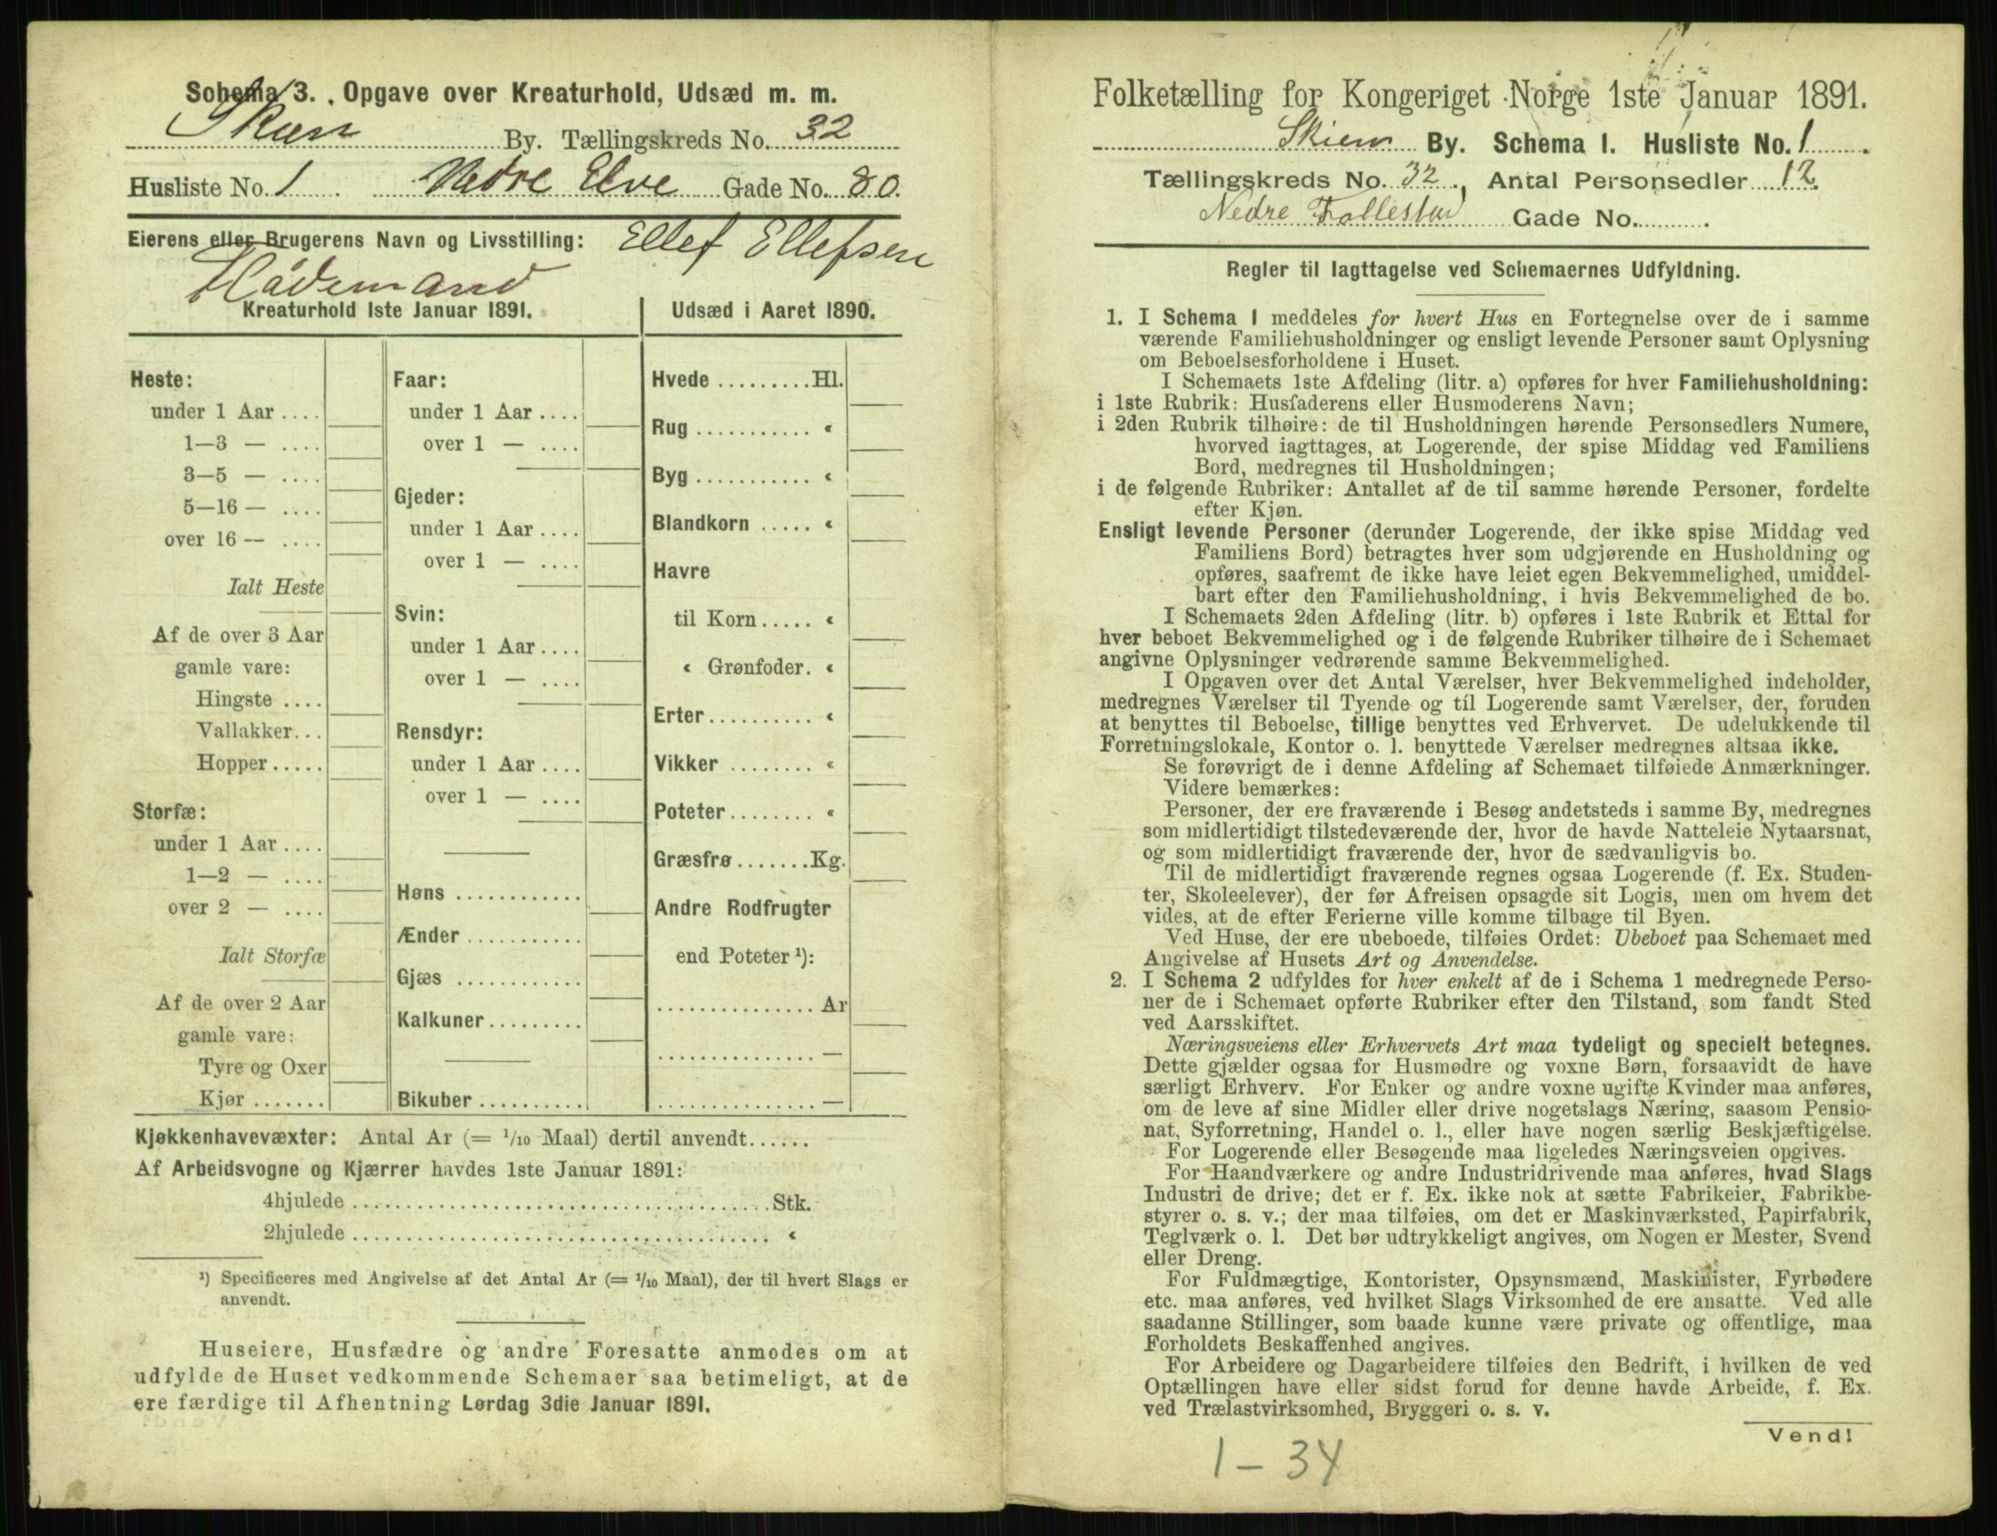 Schema 3. Opgave over Kreaturhold, Udsæd m. m.
Skien By. Tællingskreds No. 32
Husliste No. 1 Nedre Elve Gade No. 80.
Eierens eller Brugerens Navn og Livsstilling: Ellef Ellefsen
Flådemand
Kreaturhold 1ste Januar 1891.
Heste:
under 1 Aar ....
1—3 — ....
3—5 — ....
5—16 — ....
over 16 — ....
Ialt Heste
Af de over 3 Aar
gamle vare:
Hingste ....
Vallakker...
Hopper.....
Storfæ:
under 1 Aar ....
1—2 — ....
over 2 — ....
Ialt Storfæ
Af de over 2 Aar
gamle vare:
Tyre og Oxer
Kjør .......
Faar:
under 1 Aar ....
over 1 — ....
Gjeder:
under 1 Aar ....
over 1 — ....
Svin:
under 1 Aar ....
over 1 — ....
Rensdyr:
under 1 Aar ....
over 1 — ....
Høns ............
Ænder ...........
Gjæs ............
Kalkuner.........
Bikuber ..........
Udsæd i Aaret 1890.
Hvede .........Hl.
Rug ........... «
Byg ........... «
Blandkorn ..... «
Havre
til Korn ..... «
« Grønfoder. «
Erter.......... «
Vikker ........ «
Poteter........ «
Græsfrø .......Kg.
Andre Rodfrugter
end Poteter ¹):
............... Ar
............... —
............... —
Kjøkkenhavevæxter: Antal Ar (= 1/10 Maal) dertil anvendt......
Af Arbeidsvogne og Kjærrer havdes 1ste Januar 1891:
4hjulede ........................................Stk.
2hjulede ........................................ «
¹) Specificeres med Angivelse af det Antal Ar (= 1/10 Maal), der til hvert Slags er
anvendt.
Huseiere, Husfædre og andre Foresatte anmodes om at
udfylde de Huset vedkommende Schemaer saa betimeligt, at de
ere færdige til Afhentning Lørdag 3die Januar 1891.
Folketælling for Kongeriget Norge 1ste Januar 1891.
Skien By. Schema I. Husliste No. 1.
Tællingskreds No. 32, Antal Personsedler 12.
Nedre Follestad Gade No. .
Regler til Iagttagelse ved Schemaernes Udfyldning.
1. I Schema 1 meddeles for hvert Hus en Fortegnelse over de i samme
værende Familiehusholdninger og ensligt levende Personer samt Oplysning
om Beboelsesforholdene i Huset.
I Schemaets 1ste Afdeling (litr. a) opføres for hver Familiehusholdning:
i 1ste Rubrik: Husfaderens eller Husmoderens Navn;
i 2den Rubrik tilhøire: de til Husholdningen hørende Personsedlers Numere,
hvorved iagttages, at Logerende, der spise Middag ved Familiens
Bord, medregnes til Husholdningen;
i de følgende Rubriker: Antallet af de til samme hørende Personer, fordelte
efter Kjøn.
Ensligt levende Personer (derunder Logerende, der ikke spise Middag ved
Familiens Bord) betragtes hver som udgjørende en Husholdning og
opføres, saafremt de ikke have leiet egen Bekvemmelighed, umiddel-
bart efter den Familiehusholdning, i hvis Bekvemmelighed de bo.
I Schemaets 2den Afdeling (litr. b) opføres i 1ste Rubrik et Ettal for
hver beboet Bekvemmelighed og i de følgende Rubriker tilhøire de i Schemaet
angivne Oplysninger vedrørende samme Bekvemmelighed.
I Opgaven over det Antal Værelser, hver Bekvemmelighed indeholder,
medregnes Værelser til Tyende og til Logerende samt Værelser, der, foruden
at benyttes til Beboelse, tillige benyttes ved Erhvervet. De udelukkende til
Forretningslokale, Kontor o. l. benyttede Værelser medregnes altsaa ikke.
Se forøvrigt de i denne Afdeling af Schemaet tilføiede Anmærkninger.
Videre bemærkes:
Personer, der ere fraværende i Besøg andetsteds i samme By, medregnes
som midlertidigt tilstedeværende der, hvor de havde Natteleie Nytaarsnat,
og som midlertidigt fraværende der, hvor de sædvanligvis bo.
Til de midlertidigt fraværende regnes ogsaa Logerende (f. Ex. Studen-
ter, Skoleelever), der før Afreisen opsagde sit Logis, men om hvem det
vides, at de efter Ferierne ville komme tilbage til Byen.
Ved Huse, der ere ubeboede, tilføies Ordet: Ubeboet paa Schemaet med
Angivelse af Husets Art og Anvendelse.
2. I Schema 2 udfyldes for hver enkelt af de i Schema 1 medregnede Perso-
ner de i Schemaet opførte Rubriker efter den Tilstand, som fandt Sted
ved Aarsskiftet.
Næringsveiens eller Erhvervets Art maa tydeligt og specielt betegnes.
Dette gjælder ogsaa for Husmødre og voxne Børn, forsaavidt de have
særligt Erhverv. For Enker og andre voxne ugifte Kvinder maa anføres,
om de leve af sine Midler eller drive nogetslags Næring, saasom Pensio-
nat, Syforretning, Handel o. l., eller have nogen særlig Beskjæftigelse.
For Logerende eller Besøgende maa ligeledes Næringsveien opgives.
For Haandværkere og andre Industridrivende maa anføres, hvad Slags
Industri de drive; det er f. Ex. ikke nok at sætte Fabrikeier, Fabrikbe-
styrer o. s. v.; der maa tilføies, om det er Maskinværksted, Papirfabrik,
Teglværk o. l. Det bør udtrykkeligt angives, om Nogen er Mester, Svend
eller Dreng.
For Fuldmægtige, Kontorister, Opsynsmænd, Maskinister, Fyrbødere
etc. maa anføres, ved hvilket Slags Virksomhed de ere ansatte. Ved alle
saadanne Stillinger, som baade kunne være private og offentlige, maa
Forholdets Beskaffenhed angives.
For Arbeidere og Dagarbeidere tilføies den Bedrift, i hvilken de ved
Optællingen have eller sidst forud for denne havde Arbeide, f. Ex.
ved Trælastvirksomhed, Bryggeri o. s. v.
Vend!
1 – 34